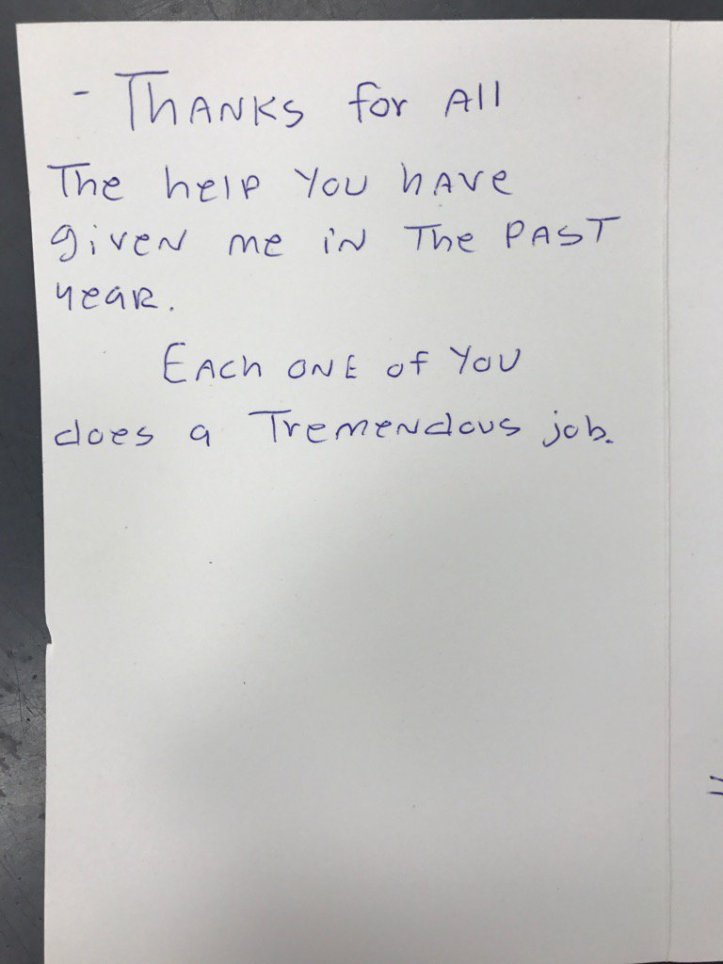 - THANKS for All
The help You have
given me in The PAST
year.
Each ONE of You
does a Tremendous job.